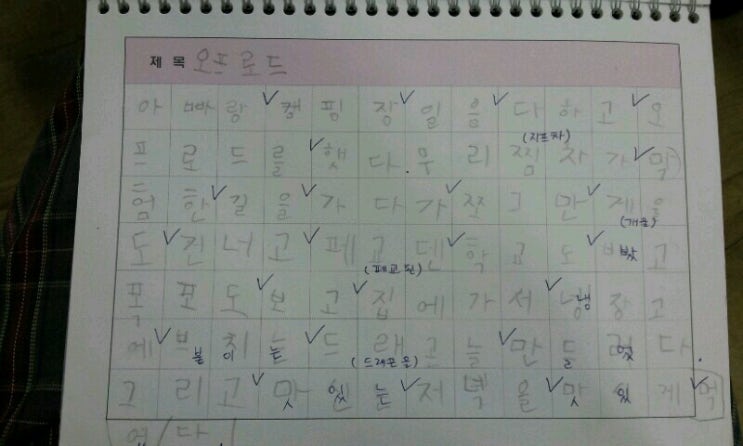 제 목 오프로드
아빠랑 캠핑장 일을 다하고 오
프로드를 햇다. 우리 찜차가 막
(지프차)
험한 길을 가다가 쪼그만 게울
(개울)
도 건너고 페교덴 학교도 밨고
(폐교 된)
폭포도 보고 집에가서 냉장고
에 붙이는 드래곤늘 만들었다.
(드래곤을)
그리고 맛잇눈 저녁을 맛있게 먹
었다.